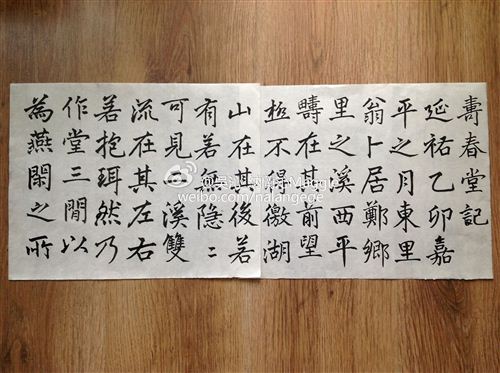 壽春堂記
延祐乙卯嘉
平之月東里
翁卜居鄭鄉
里之溪西平
疇在其前望
極不得徼湖
山在其後若
有若無隱〻
可見二溪雙
流在其左右
若抱珥然乃
作堂三閒以
為燕閑之所
weibo.com/nalangege